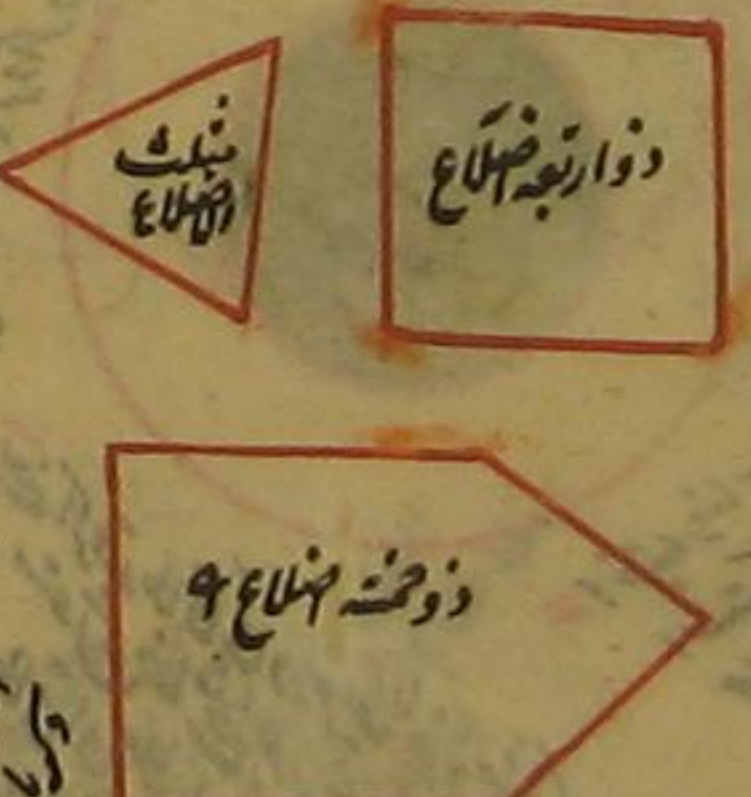 ذو اربعة اضلاع
مثلث
الاضلاع
ذو خمسة اضلاع